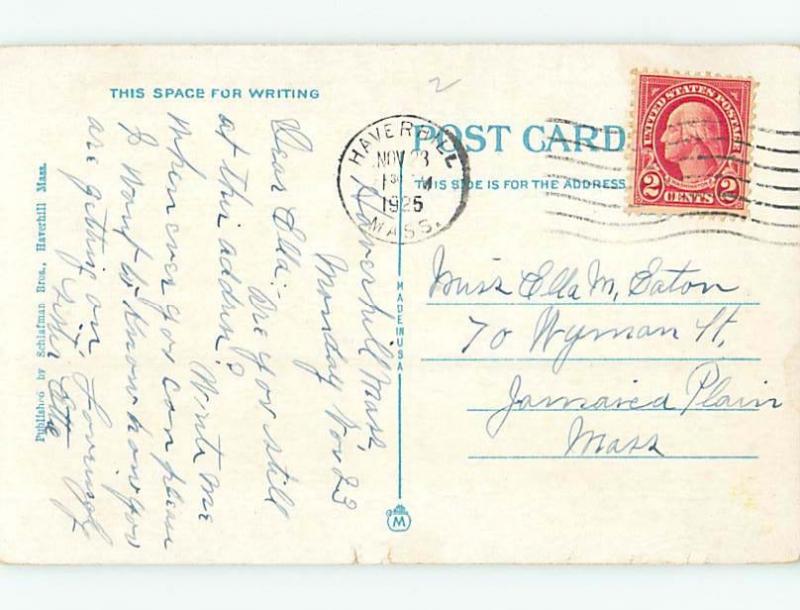 THIS SPACE FOR WRITING
POST CARD
THIS SIDE IS FOR THE ADDRESS
2
HAVERHILL
NOV 23
1925
MASS.
UNITED STATES POSTAGE
2 CENTS 2
Haverhill Mass,
Monday Nov 23
Dear Ella:- Are you still
at this address? Write me
when ever you can please
I want to know how you
are getting on, Lovingly
Sister
Miss Ella M, Eaton
70 Wyman St,
Jamaica Plain
Mass
MADE IN USA
M
Published by Schlafman Bros., Haverhill Mass.